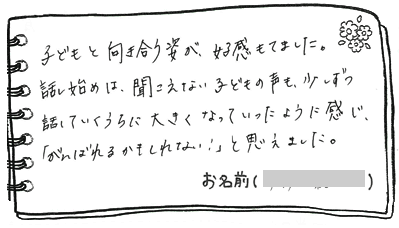 子どもと向き合う姿が、好感もてました。
話し始めは、聞こえない子どもの声も、少しずつ
話していくうちに大きくなっていったように感じ、
「がんばれるかもしれない！」と思えました。
お名前( )